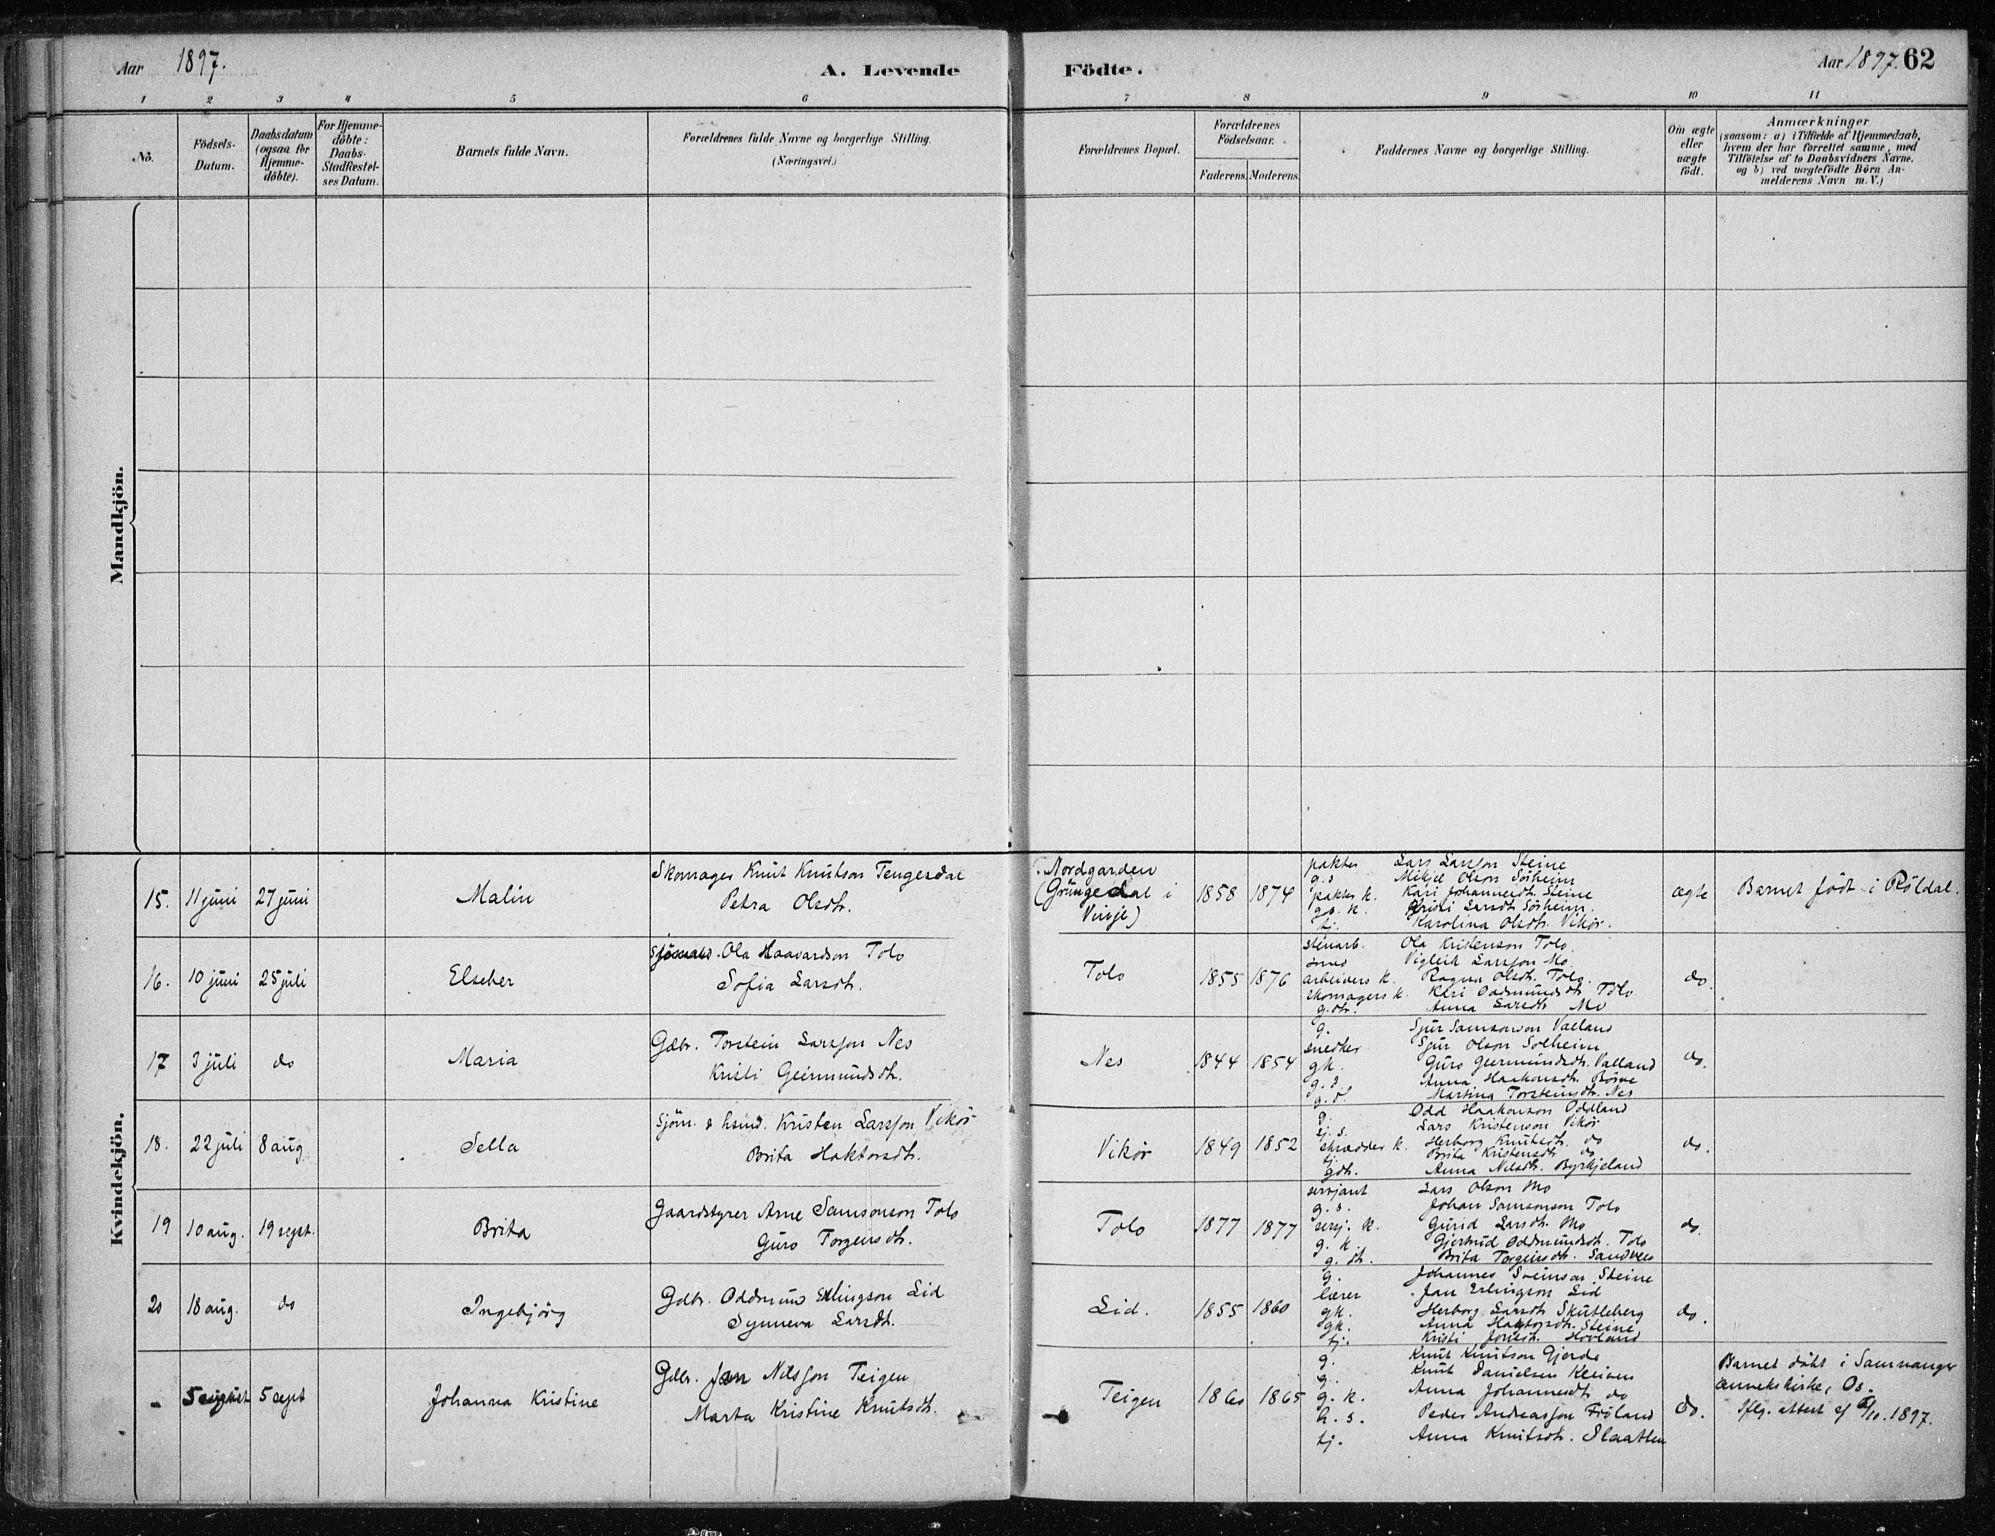 Aar 1897.
A. Levende Födte.
Aar 1897. 62
1 2 3 4 5 6 7 8 9 10 11
No.
Födsels-
Datum.
Daabsdatum
(ogsaa for
Hjemme-
döbte).
For Hjemme-
döbte:
Daabs-
Stadfæstel-
ses Datum.
Barnets fulde Navn.
Forældrenes fulde Navne og borgerlige Stilling.
(Næringsvei.)
Forældrenes Bopæl.
Forældrenes
Födselsaar.
Faderens. Moderens.
Faddernes Navne og borgerlige Stilling.
Om ægte
eller
uægte
födt.
Anmærkninger
(saasom: a) i Tilfælde af Hjemmedaab,
hvem der har forrettet samme, med
Tilföielse af to Daabsvidners Navne.
og b) ved uægtefödte Börn An-
melderens Navn m. V.)
Mandkjön.
Kvindekjön.
15. 11 juni 27 juni Malin
Skomager Knut Knutson Tengesdal
Petra Olsdtr.
Nordgarden
(Grungedal i
Vinje)
1858 1874
pakter Lars Larsson Steine
g.s Mikjel Olson Sörheim
pakter k. Kari Johannesdt. Steine
g.s. k. Kristi Larsdt. Sörheim.
tj. Karolina Olsdtr. Vikör.
ægte Barnet födt i Röldal.
16. 10 juni 25 juli Elseber
Ola Haavardson Tolo
Sofia Larsdt.
Tolo 1855 1876
stenarb. Ola Kristenson Tolo
smed Vigleik Larsson Mo.
arbeiders k. Ragna Olsdt. Tolo
skomagers k. Kari Oddmundsdt. Tolo
g.dtr. Anna Larsdt. Mo
do.
17 3 juli do Maria
Gdbr. Torstein Larsson Nes
Kristi Geirmundsdt.
Nes 1844 1854
g. Sjur Samsonson Valland
snedker Sjur Olson Solheim
gk. Guro Geirmundsdt. Valland
g.d. Anna Haakonsdt. Börve
g.d. Martina Torsteinsdt. Nes
do.
18. 22 juli 8 aug Sella
Sjöm. & husmd. Kristen Larsson Vikör
Brita Haktorsdt.
Vikör 1849 1852
g. Odd Haakonson Oddland
sj. s. Lars Kristenson Vikör
skrædder k. Herborg Knutsdt. do
tj. Brita Kristensdt. do
gdt. Anna Nilsdt. Byrkjeland
do.
19 10 aug. 19 sept. Brita
Gaardstyrer Arne Samsonson Tolo
Guro Torgeirsdt.
Tolo 1877 1877
serjant Lars Olson Mo
g. s. Johan Samsonson Tolo
serj. k. Gurid Larsdt. Mo
g. k. Gjertrud Oddmundsdt. Tolo
g. dt. Brita Torgeirsdt. Sandven
do.
20 18 aug. do Ingebjörg
Gdbr. Oddmund Erlingson Lid
Synneva Larsdt.
Lid. 1855 1860
g. Johannes Sveinson Steine
lærer Jan Erlingson Lid
gk. Herborg Larsdt. Skutleberg
gk. Anna Haktorsdt. Steine
tj. Kristi Jonsdt. Hovland
do.
- 5 august 5 sept Johanna Kristine
Gdbr. Jan Nilsson Teigen
Marta Kristine Knutsdt.
Teigen 1860 1865
g. Knut Knutson Gjerde
g. Knut Danielsen Kleiven
g. k. Anna Johannesdt. do
h. s. Peder Andreasson Fröland
tj. Anna Knutsdt. Slaatten
do.
Barnet döbt i Samnanger
annekskirke, Os.
Iflg. attest af 1897.